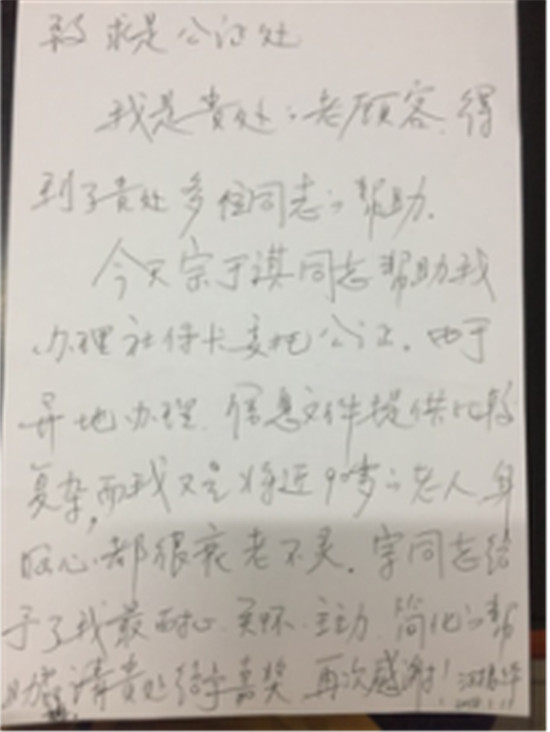 致求是公证处
我是贵处的老顾客,得
到了贵处多位同志的帮助.
今天宗于淇同志帮助我
办理社保卡委托公证.由于
异地办理.信息文件提供比较
复杂,而我又是将近90岁的老人身
脑心都很衰老不灵.宗同志给
予了我最耐心.关怀.主动.简化的帮
助.请贵处给予嘉奖 再次感谢!